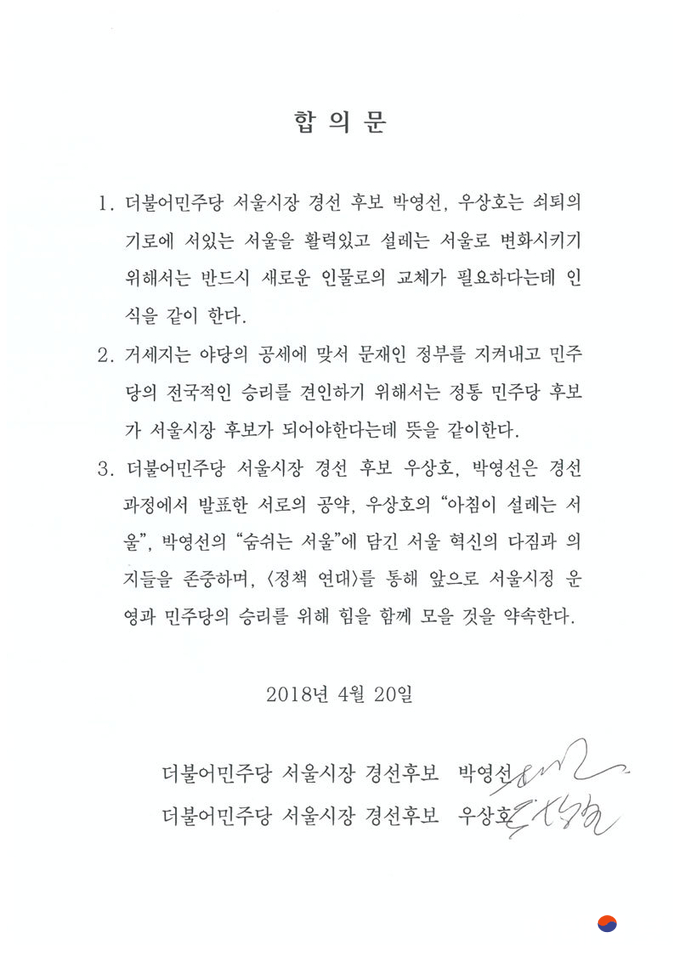 합 의 문
1. 더불어민주당 서울시장 경선 후보 박영선, 우상호는 쇠퇴의
기로에 서있는 서울을 활력있고 설레는 서울로 변화시키기
위해서는 반드시 새로운 인물로의 교체가 필요하다는데 인
식을 같이 한다.
2. 거세지는 야당의 공세에 맞서 문재인 정부를 지켜내고 민주
당의 전국적인 승리를 견인하기 위해서는 정통 민주당 후보
가 서울시장 후보가 되어야한다는데 뜻을 같이한다.
3. 더불어민주당 서울시장 경선 후보 우상호, 박영선은 경선
과정에서 발표한 서로의 공약, 우상호의 “아침이 설레는 서
울”, 박영선의 “숨쉬는 서울”에 담긴 서울 혁신의 다짐과 의
지들을 존중하며, 〈정책 연대〉를 통해 앞으로 서울시정 운
영과 민주당의 승리를 위해 힘을 함께 모을 것을 약속한다.
2018년 4월 20일
더불어민주당 서울시장 경선후보 박영선
더불어민주당 서울시장 경선후보 우상호